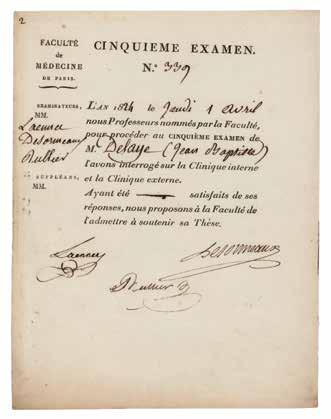 2
FACULTÉ
de
MÉDECINE
DE PARIS.
CINQUIEME EXAMEN.
N.º 339
EXAMINATEURS,
MM.
Laennec
Desormeaux
Rullier
SUPPLÉANS,
MM.
L'AN 1824 le Jeudi 1 avril
nous Professeurs nommés par la Faculté,
pour procéder au CINQUIÈME EXAMEN de
M. Delaye (Jean Baptiste)
l'avons interrogé sur la Clinique interne
et la Clinique externe.
Ayant été satisfaits de ses
réponses, nous proposons à la Faculté de
l'admettre à soutenir sa Thèse.
Laennec
Desormeaux
Rullier